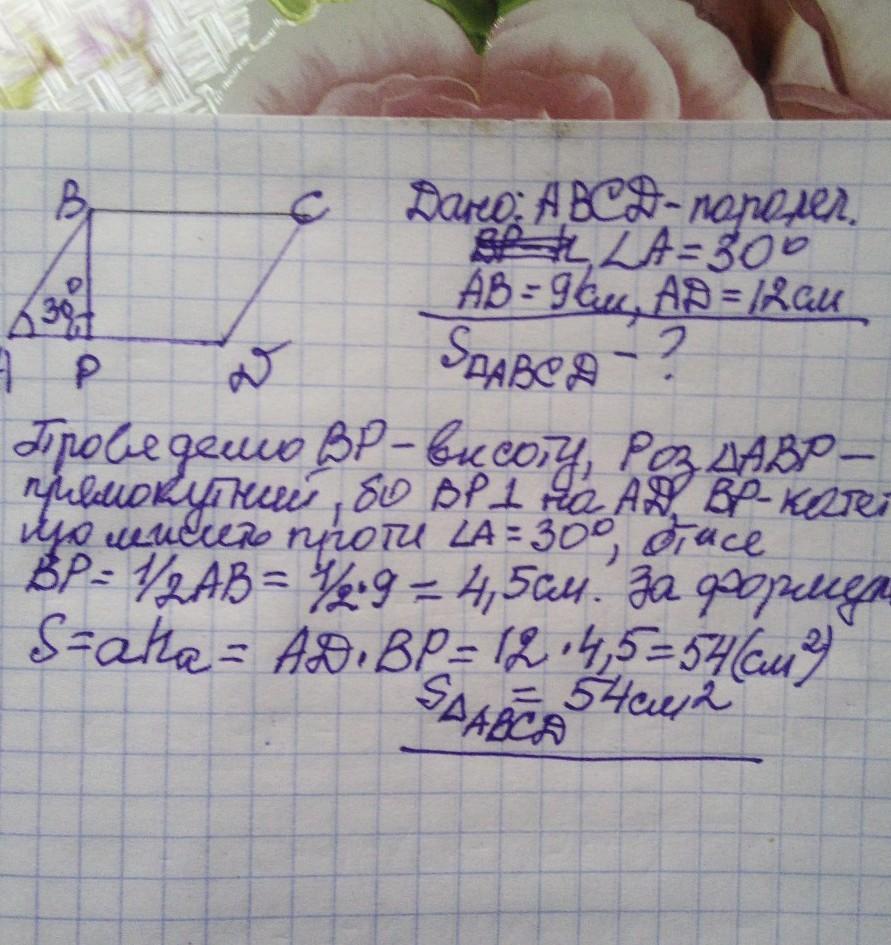 B C
30°
A P D
Дано: ABCD - паролел.
∠A = 30°
AB = 9см, AD = 12см
S△ABCD - ?
Проведемо BP - висоту, Роз △ABP -
прямокутний, бо BP ⊥ на AD, BP - катет
що лижить проти ∠A = 30°, отже
BP = 1/2 AB = 1/2 · 9 = 4,5см. За формул
S = aha = AD · BP = 12 · 4,5 = 54 (см²)
S△ABCD = 54см2